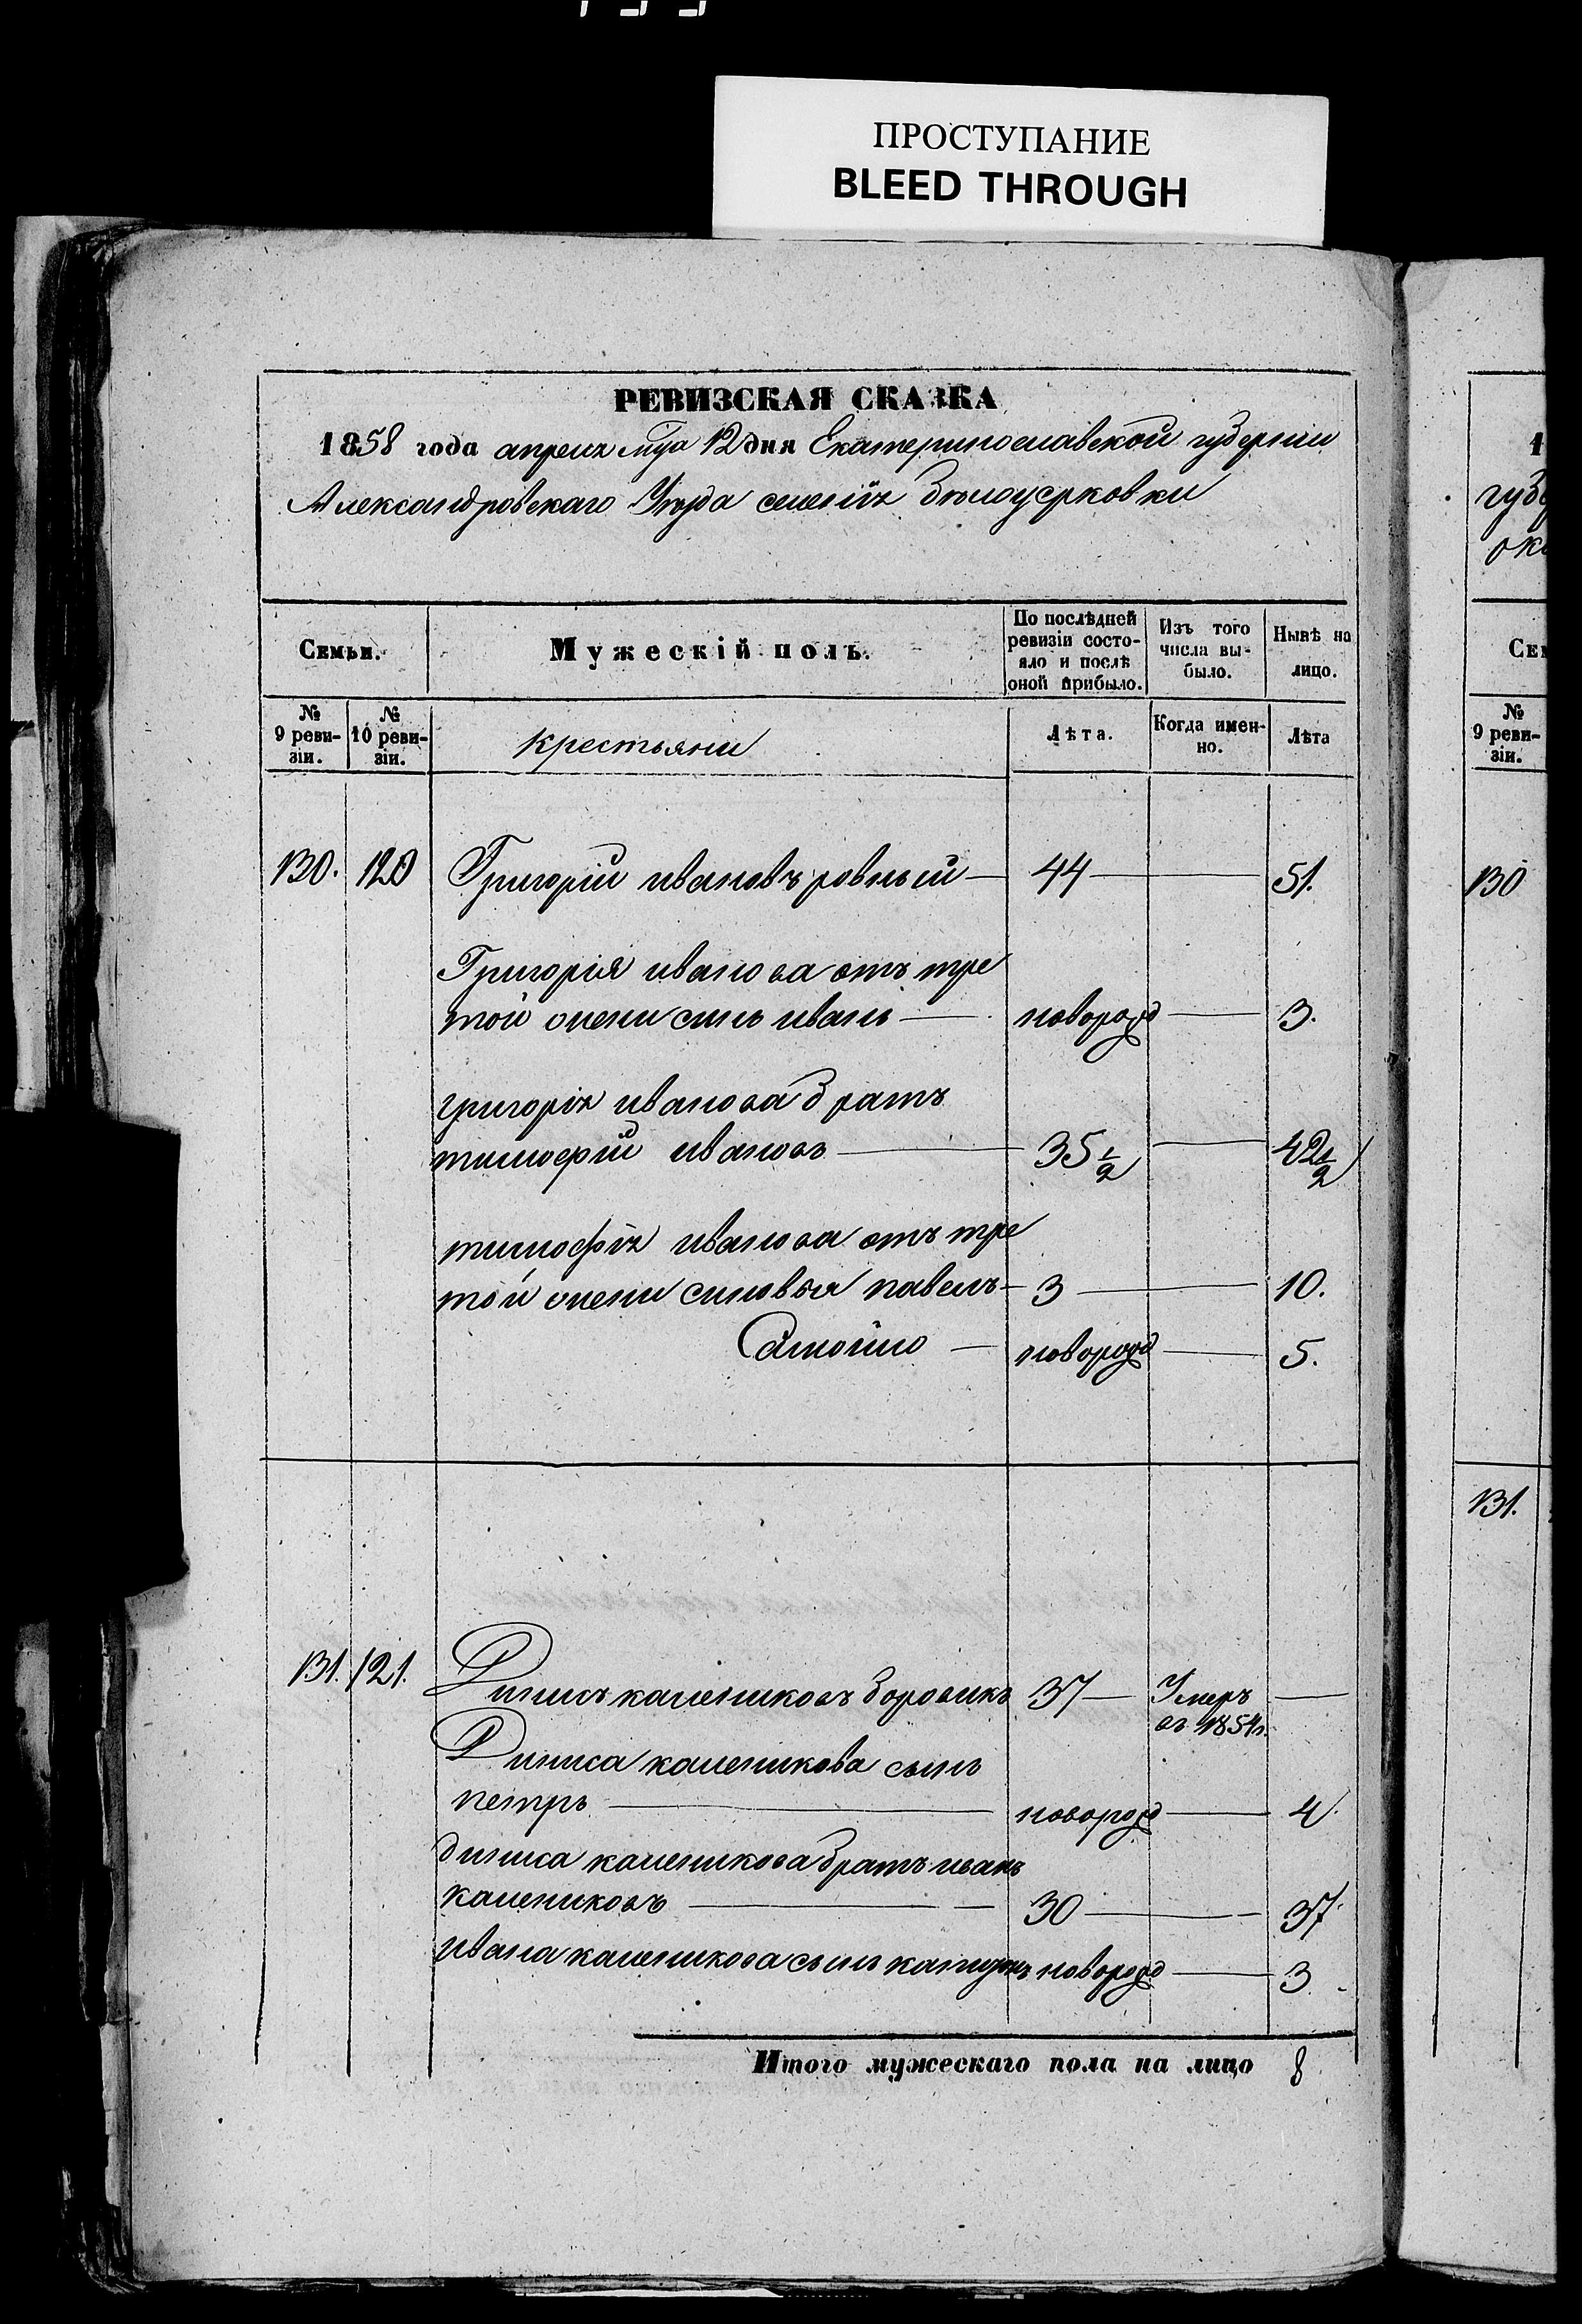 ПРОСТУПАНИЕ
BLEED THROUGH
РЕВИЗСКАЯ СКАЗКА
1858 года апреля мца 12 дня Екатеринославской губернии
Александровскаго Уезда селения
Семьи.
Мужескій полъ.
По послѣдней ревизіи состо-яло и послѣ оной прибыло.
Изъ того числа вы-было.
Нынѣ на лицо.
№ 9 реви-зіи.
№ 10 реви-зіи.
крестьяни
Лѣта.
Когда имен-но.
Лѣта
130. 120 Григорій ивановъ ровный — 44 — 51.
Григорія иванова отъ тре
той жени синъ иванъ — новорожд — 3.
григорія иванова братъ
тимофій ивановъ — 35 1/2 — 42 1/2
тимофія иванова отъ тре
той жени синовья павелъ — 3 — 10.
— новорожд — 5.
131. 121. Динисъ калениковъ боровикъ 37 — Умеръ —
въ 1854г.
Диниса каленикова сынъ
петръ — новорожд — 4.
диниса каленикова братъ иванъ
калениковъ — 30 — 37.
ивана каленикова сынъ новорожд — 3.
Итого мужескаго пола на лицо 8
1
губ
ок
Се
№
9 реви-
зіи.
130
131.